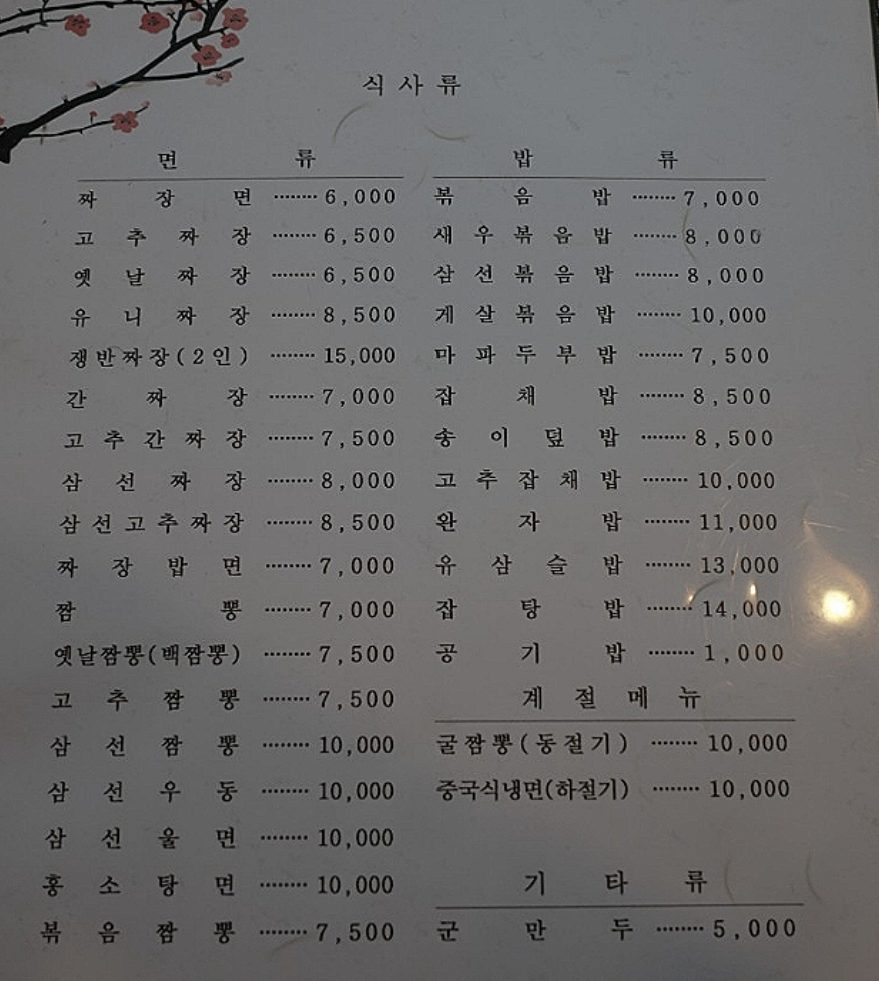 식사류
면 류
짜장면 ········ 6,000
고추짜장 ········ 6,500
옛날짜장 ········ 6,500
유니짜장 ········ 8,500
쟁반짜장(2인) ········ 15,000
간짜장 ········ 7,000
고추간짜장 ········ 7,500
삼선짜장 ········ 8,000
삼선고추짜장 ········ 8,500
짜장밥면 ········ 7,000
짬뽕 ········ 7,000
옛날짬뽕(백짬뽕) ········ 7,500
고추짬뽕 ········ 7,500
삼선짬뽕 ········ 10,000
삼선우동 ········ 10,000
삼선울면 ········ 10,000
홍소탕면 ········ 10,000
볶음짬뽕 ········ 7,500
밥 류
볶음밥 ········ 7,000
새우볶음밥 ········ 8,000
삼선볶음밥 ········ 8,000
게살볶음밥 ········ 10,000
마파두부밥 ········ 7,500
잡채밥 ········ 8,500
송이덮밥 ········ 8,500
고추잡채밥 ········ 10,000
완자밥 ········ 11,000
유삼슬밥 ········ 13,000
잡탕밥 ········ 14,000
공기밥 ········ 1,000
계절메뉴
굴짬뽕(동절기) ········ 10,000
중국식냉면(하절기) ········ 10,000
기타류
군만두 ········ 5,000